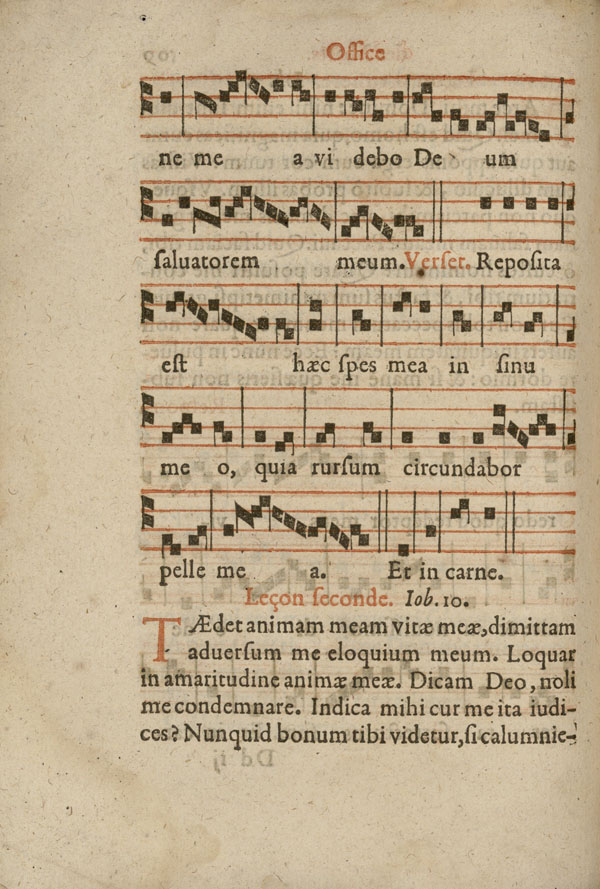 Office
ne me a vi debo De um
saluatorem meum. Verset. Reposita
est hæc spes mea in sinu
me o, quia rursum circundabor
pelle me a. Et in carne.
Leçon seconde. Iob. 10.
TÆdet animam meam vitæ meæ, dimittam
aduersum me eloquium meum. Loquar
in amaritudine animæ meæ. Dicam Deo, noli
me condemnare. Indica mihi cur me ita iudi-
ces? Nunquid bonum tibi videtur, si calumnie-
Dd ij